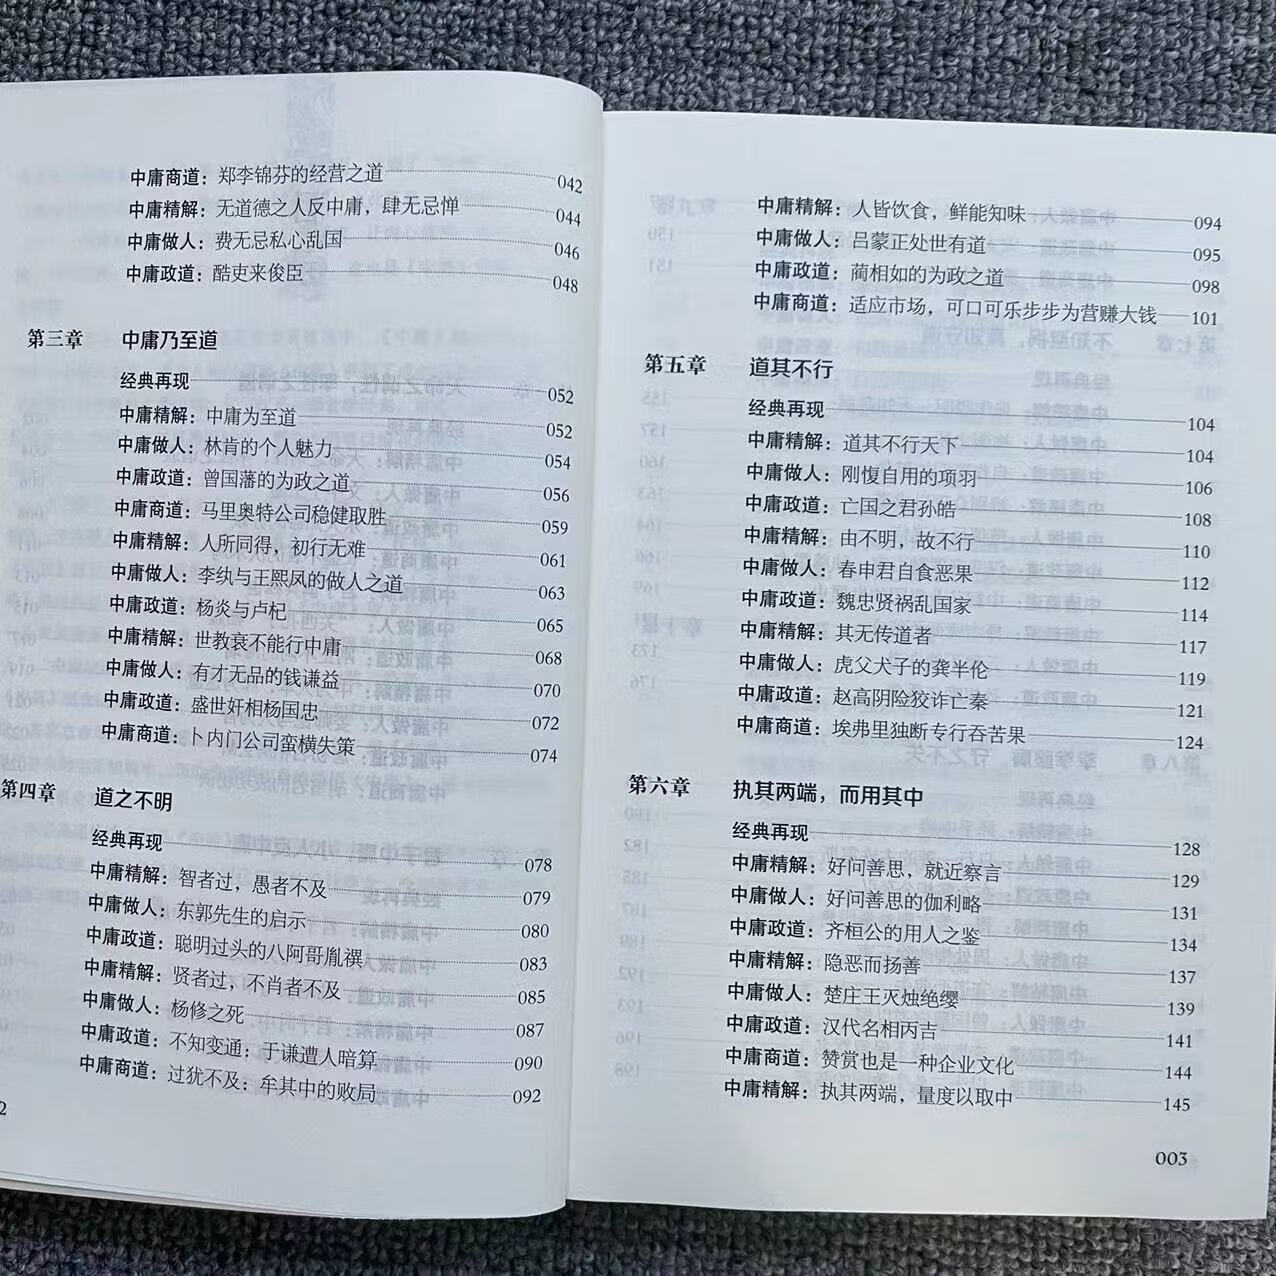 中庸商道：郑李锦芬的经营之道 042
中庸精解：无道德之人反中庸，肆无忌惮 044
中庸做人：费无忌私心乱国 046
中庸政道：酷吏来俊臣 048
第三章 中庸乃至道
经典再现 052
中庸精解：中庸为至道 052
中庸做人：林肯的个人魅力 054
中庸政道：曾国藩的为政之道 056
中庸商道：马里奥特公司稳健取胜 059
中庸精解：人所同得，初行无难 061
中庸做人：李纨与王熙凤的做人之道 063
中庸政道：杨炎与卢杞 065
中庸精解：世教衰不能行中庸 068
中庸做人：有才无品的钱谦益 070
中庸政道：盛世奸相杨国忠 072
中庸商道：卜内门公司蛮横失策 074
第四章 道之不明
经典再现 078
中庸精解：智者过，愚者不及 079
中庸做人：东郭先生的启示 080
中庸政道：聪明过头的八阿哥胤禩 083
中庸精解：贤者过，不肖者不及 085
中庸做人：杨修之死 087
中庸政道：不知变通：于谦遭人暗算 090
中庸商道：过犹不及：牟其中的败局 092
2
中庸精解：人皆饮食，鲜能知味 094
中庸做人：吕蒙正处世有道 095
中庸政道：蔺相如的为政之道 098
中庸商道：适应市场，可口可乐步步为营赚大钱 101
第五章 道其不行
经典再现 104
中庸精解：道其不行天下 104
中庸做人：刚愎自用的项羽 106
中庸政道：亡国之君孙皓 108
中庸精解：由不明，故不行 110
中庸做人：春申君自食恶果 112
中庸政道：魏忠贤祸乱国家 114
中庸精解：其无传道者 117
中庸做人：虎父犬子的龚半伦 119
中庸政道：赵高阴险狡诈亡秦 121
中庸商道：埃弗里独断专行吞苦果 124
第六章 执其两端，而用其中
经典再现 128
中庸精解：好问善思，就近察言 129
中庸做人：好问善思的伽利略 131
中庸政道：齐桓公的用人之鉴 134
中庸精解：隐恶而扬善 137
中庸做人：楚庄王灭烛绝缨 139
中庸政道：汉代名相丙吉 141
中庸商道：赞赏也是一种企业文化 144
中庸精解：执其两端，量度以取中 145
003